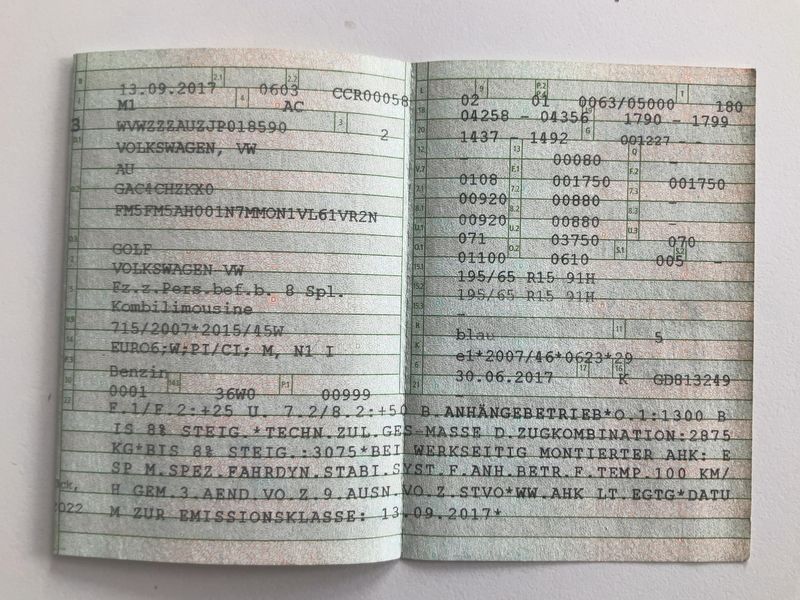 13.09.2017 0603 CCR00058
M1 AC
WVWZZZAUZJP018590 3 2
VOLKSWAGEN, VW
AU
GAC4CHZKX0
FM5FM5AH001N7MMON1VL61VR2N
GOLF
VOLKSWAGEN-VW
Fz.z.Pers.bef.b. 8 Spl.
Kombilimousine
715/2007*2015/45W
EURO6;W;PI/CI; M, N1 I
Benzin
0001 36W0 00999
02 01 0063/05000 180
04258 - 04356 1790 - 1799
1437 - 1492 001227 - -
- 00080 -
0108 001750 001750
00920 00880 -
00920 00880 -
071 03750 070
01100 0610 005 -
195/65 R15 91H
195/65 R15 91H
-
blau 5
e1*2007/46*0623*29
30.06.2017 K GD813249
-
F.1/F.2:+25 U. 7.2/8.2:+50 B.ANHÄNGEBETRIEB*O.1:1300 B
IS 8% STEIG.*TECHN.ZUL.GES-MASSE D.ZUGKOMBINATION:2875
KG*BIS 8% STEIG.:3075*BEI WERKSEITIG MONTIERTER AHK: E
SP M.SPEZ.FAHRDYN.STABI.SYST.F.ANH.BETR.F.TEMP.100 KM/
H GEM.3.AEND.VO.Z.9.AUSN.VO.Z.STVO*WW.AHK LT.EGTG*DATU
M ZUR EMISSIONSKLASSE: 13.09.2017*